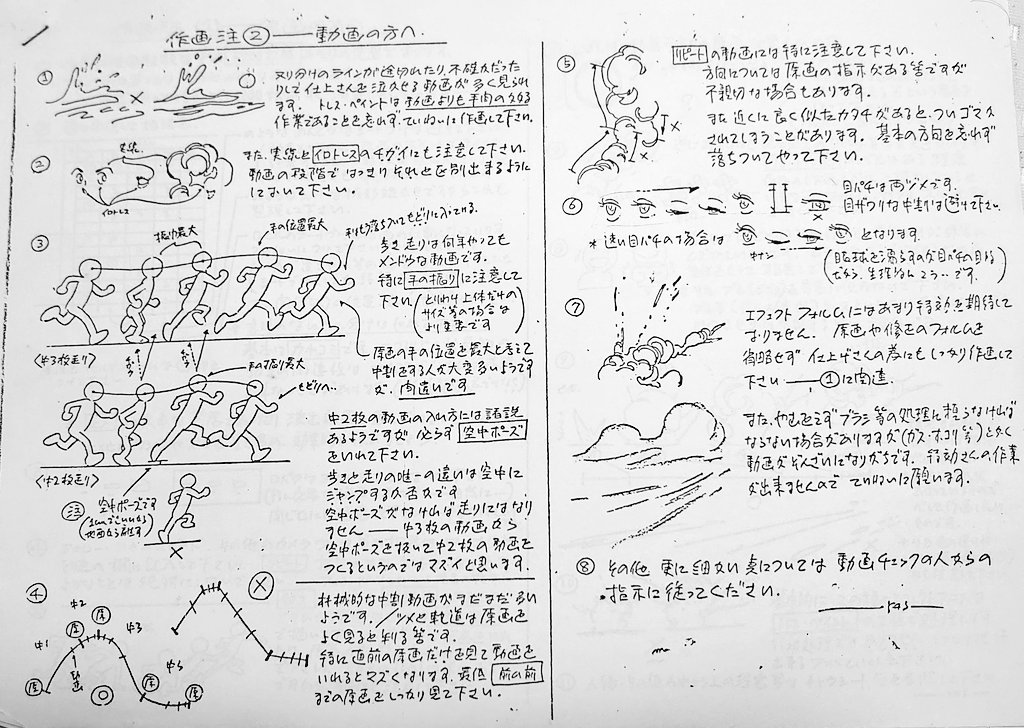 作画注② ── 動画の方へ.
①
ヌリ分けのラインが途切れたり、不確かだった
りして仕上さんを泣かせる動画が多く見られ
ます。トレス・ペイントは動画よりも手肉のかかる
作業であることを忘れず、ていねいに作画して下さい。
②
実線
イロトレス
また、実線とイロトレスのチガイにも注意して下さい。
動画の段階で はっきり それと区別出来るように
しておいて下さい。
③
振り最大
手の位置最大
歩き走りは何年やっても
メンドウな動画です。
特に手の振りに注意して
下さい
(とりわけ上体だけの
サイズ等の場合は
より重要です)
<中3枚走り>
原画の手の位置を最大と考えて
中割りする人が大変多いようです
が、間違いです
手の振り最大
もどりへ..
<中2枚走り>
中2枚の動画の入れ方には諸説
あるようですが 必らず 空中ポーズ
をいれて下さい.
歩きと走りの唯一の違いは空中に
ジャンプするか否かです
空中ポーズがなければ走りにはなり
ません ── 中3枚の動画から
空中ポーズを抜いて中2枚の動画を
つくるというのではマズイと思います.
注
空中ポーズです
地面から離す)
×
④
原
中1
中2
原
原
中3
中5
原
原
動画
◎
×
機械的な中割動画がまだまだ多い
ようです. ツメと軌道は原画を
よく見ると判る筈です.
特に直前の原画だけを見て動画を
いれるとマズくなります. 最低 前の前
までの原画をしっかり見て下さい.
⑤
リピートの動画には特に注意して下さい.
方向については原画の指示がある筈ですが
不親切な場合もあります.
また近くに良く似たカタチがあると、ついゴマカ
されてしまうことがあります. 基本の方向を忘れず
落ちついてやって下さい.
×
×
⑥
目パチは両ヅメです.
目ザワリな中割は避けて下さい.
×
* 速い目パチの場合は
となります.
(眼球を滑るのが目パチの目的
だから、生理的にこう…です.)
⑦
エフェクト フォルムにはあまり特効を期待して
おりません. 原画や修正のフォルムを
省略せず 仕上げさんの為にもしっかり作画して
下さい ── ①に関連.
また、やむをえず ブラシ等の処理に頼らなければ
ならない場合がありますが(ガス・ホコリ等)とかく
動画がぞんざいになりがちです. 特効さんの作業
が出来ませんので ていねいに願います.
⑧ その他 更に細かい点については 動画チェックの人からの
指示に従ってください.